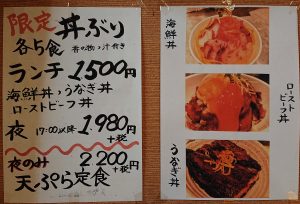 限定 丼ぶり
各5食 香の物、汁付き
ランチ 1500円
海鮮丼、うなぎ丼
ローストビーフ丼
夜 17:00以降 1,980円
+税
夜のみ 2200円
+税
天ぷら定食
海鮮丼
ローストビーフ丼
うなぎ丼